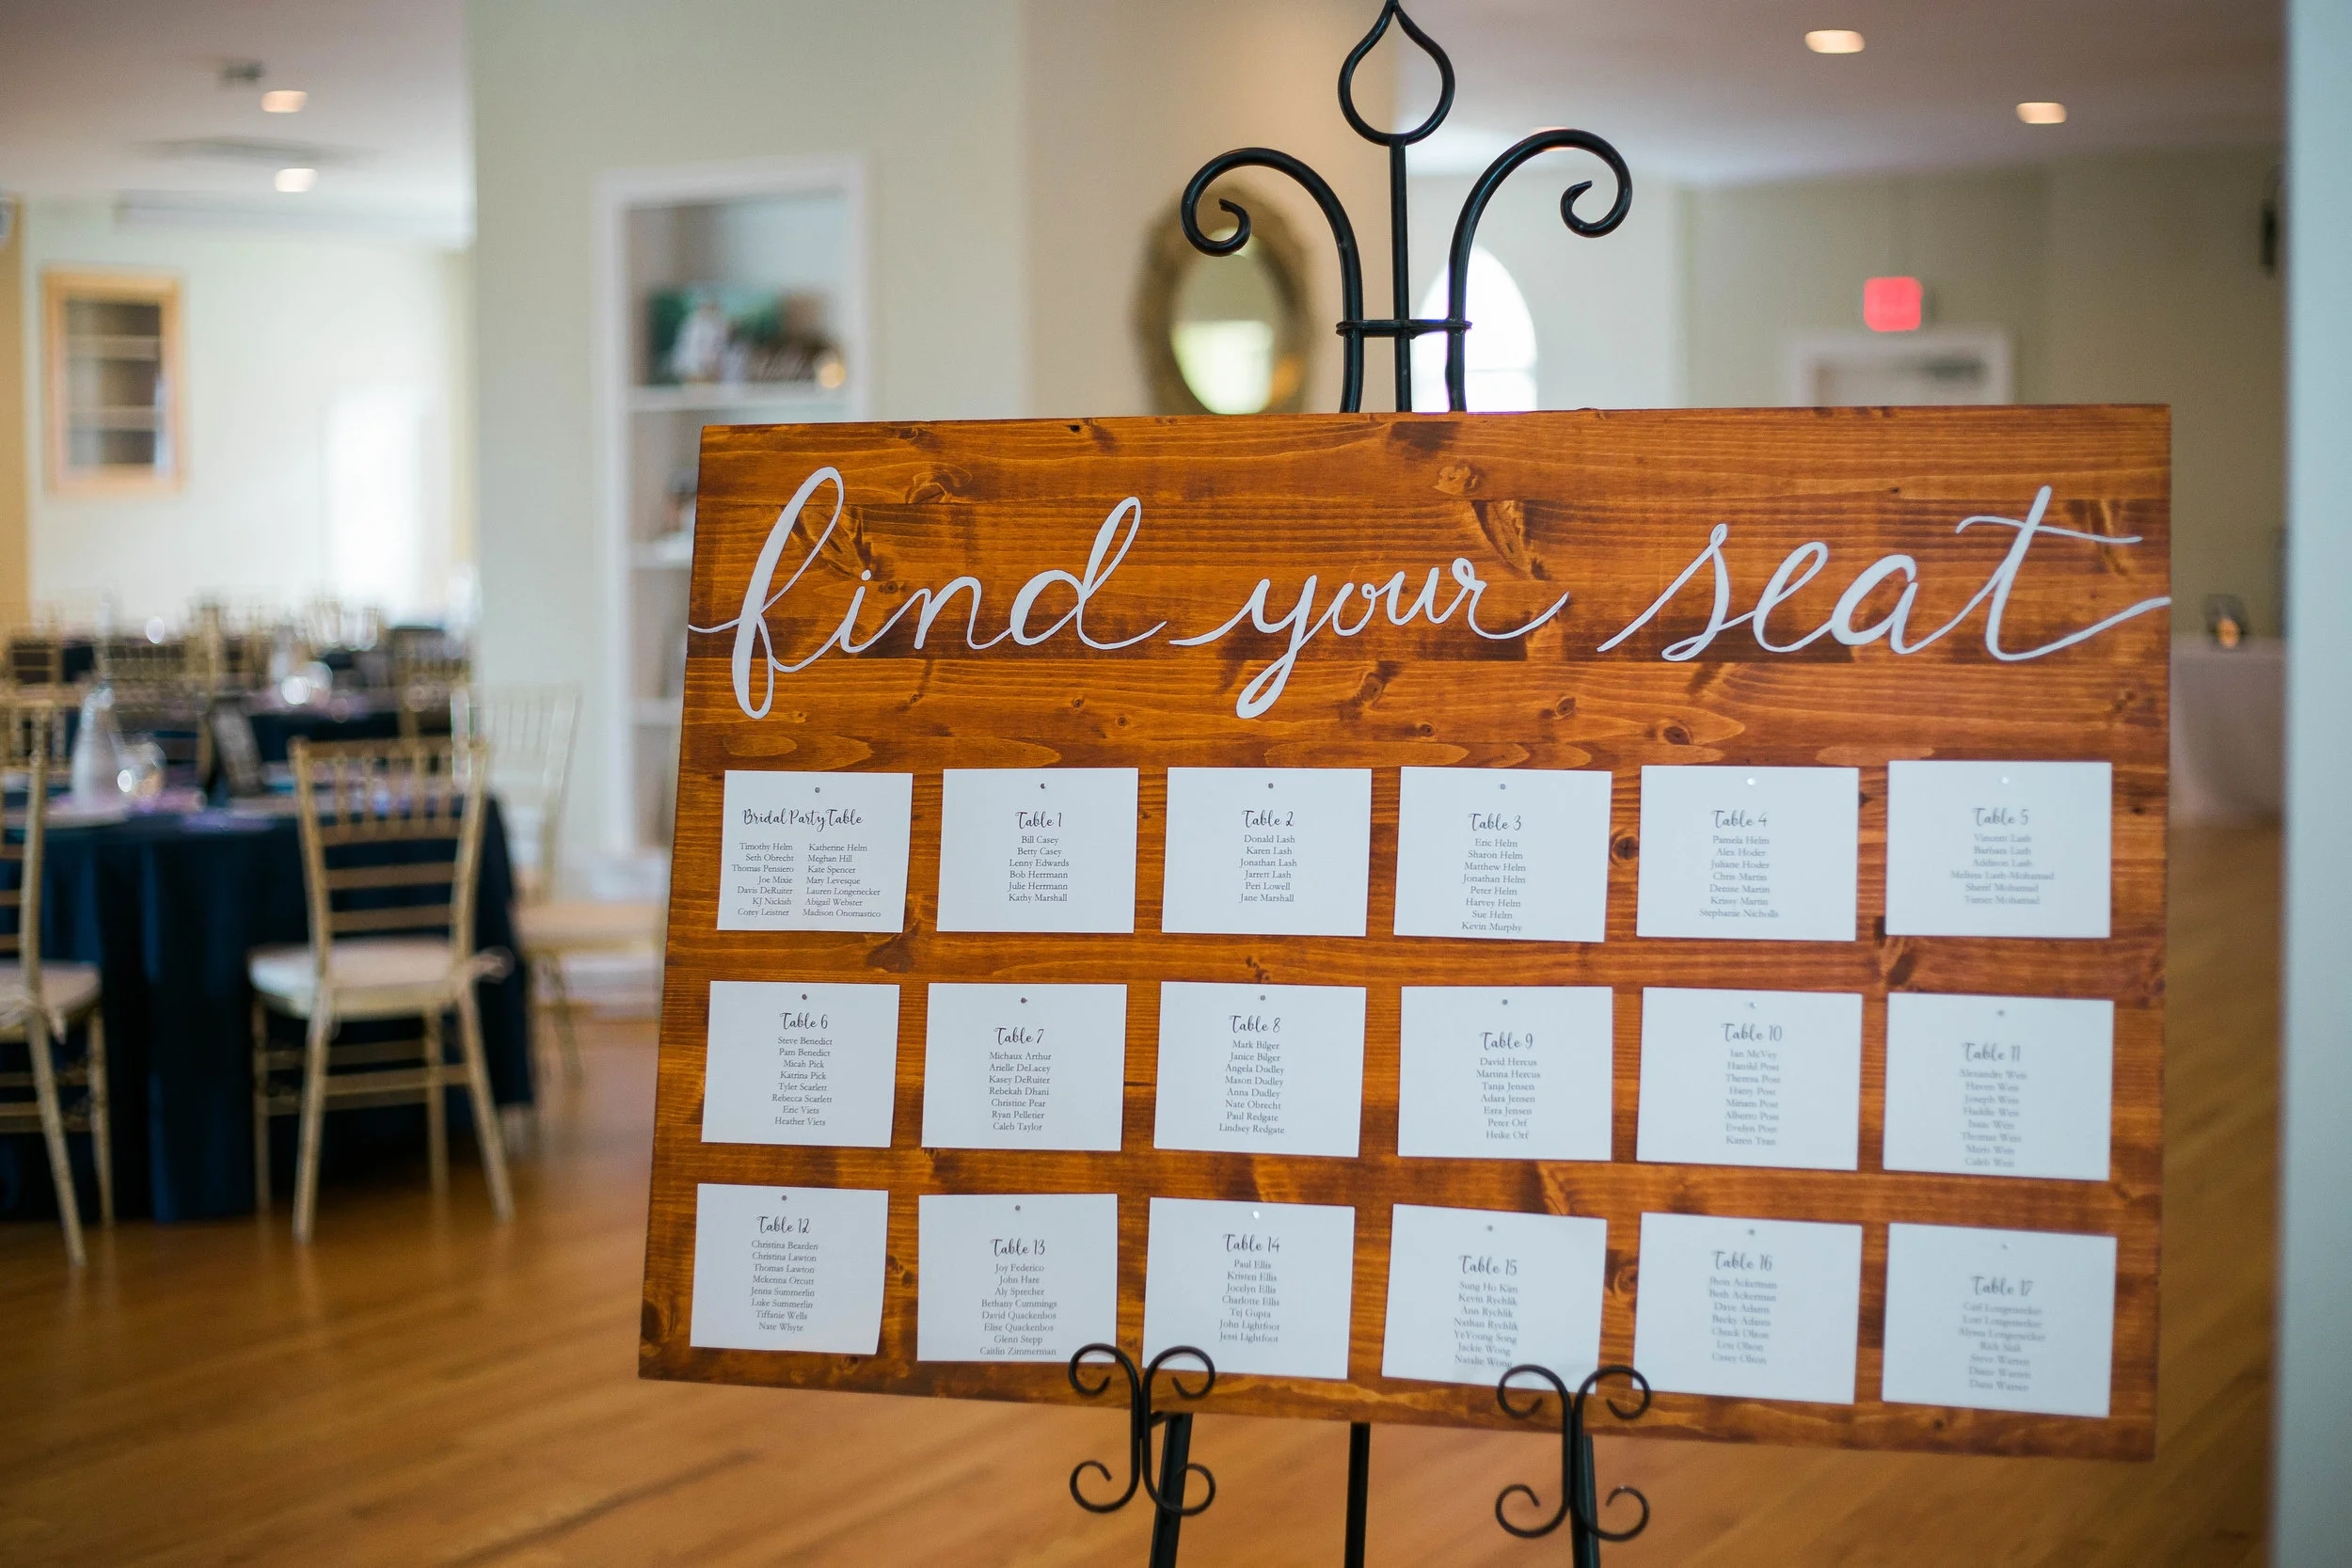 find your seat
Bridal Party Table
Timothy Helm Katherine Helm
Seth Obrecht Meghan Hill
Thomas Pensiero Kate Spencer
Joe Mixie Mary Levesque
Davis DeRuiter Lauren Longenecker
KJ Nickish Abigail Webster
Corey Leistner Madison Onomastico
Table 1
Bill Casey
Betty Casey
Lenny Edwards
Bob Herrmann
Julie Herrmann
Kathy Marshall
Table 2
Donald Lash
Karen Lash
Jonathan Lash
Jarrett Lash
Peri Lowell
Jane Marshall
Table 3
Eric Helm
Sharon Helm
Matthew Helm
Jonathan Helm
Peter Helm
Harvey Helm
Sue Helm
Kevin Murphy
Table 4
Pamela Helm
Alex Hoder
Juliane Hoder
Chris Martin
Denise Martin
Krissy Martin
Stephanie Nicholls
Table 5
Vincent Lash
Barbara Lash
Addison Lash
Melissa Lash-Mohamad
Sherif Mohamad
Tamer Mohamad
Table 6
Steve Benedict
Pam Benedict
Micah Pick
Katrina Pick
Tyler Scarlett
Rebecca Scarlett
Eric Viets
Heather Viets
Table 7
Michaux Arthur
Arielle DeLacey
Kasey DeRuiter
Rebekah Dhani
Christine Pear
Ryan Pelletier
Caleb Taylor
Table 8
Mark Bilger
Janice Bilger
Angela Dudley
Mason Dudley
Anna Dudley
Nate Obrecht
Paul Redgate
Lindsey Redgate
Table 9
David Hercus
Martina Hercus
Tanja Jensen
Adara Jensen
Ezra Jensen
Peter Orf
Heike Orf
Table 10
Ian McVey
Harold Post
Theresa Post
Harry Post
Miriam Post
Alberto Post
Evelyn Post
Karen Tran
Table 11
Alexander Weis
Haven Weis
Joseph Weis
Haddie Weis
Isaac Weis
Thomas Weis
Mary Weis
Caleb Weis
Table 12
Christina Bearden
Christina Lawton
Thomas Lawton
Mckenna Orcutt
Jenna Summerlin
Luke Summerlin
Tiffanie Wells
Nate Whyte
Table 13
Joy Federico
John Hare
Aly Sprecher
Bethany Cummings
David Quackenbos
Elise Quackenbos
Glenn Stepp
Caitlin Zimmerman
Table 14
Paul Ellis
Kristen Ellis
Jocelyn Ellis
Charlotte Ellis
Tej Gupta
John Lightfoot
Jessi Lightfoot
Table 15
Sung Ho Kim
Kevin Rychlik
Ann Rychlik
Nathan Rychlik
YeYoung Song
Jackie Wong
Natalie Wong
Table 16
Ackerman
Beth Ackerman
Dave Adams
Becky Adams
Chuck Olson
Lou Olson
Casey Olson
Table 17
Carl Longenecker
Lori Longenecker
Alyssa Longenecker
Rick
Steve Warren
Diane Warren
Dana Warren